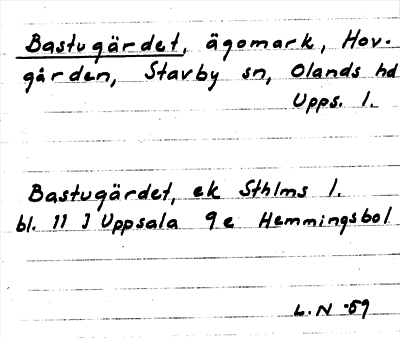 Bastugärdet, ägomark, Hov-
gården, Stavby sn, Olands hd
Upps. l.
Bastugärdet, ek Sthlms l.
bl. 11 J Uppsala 9 e Hemmingsbol
L. N -59